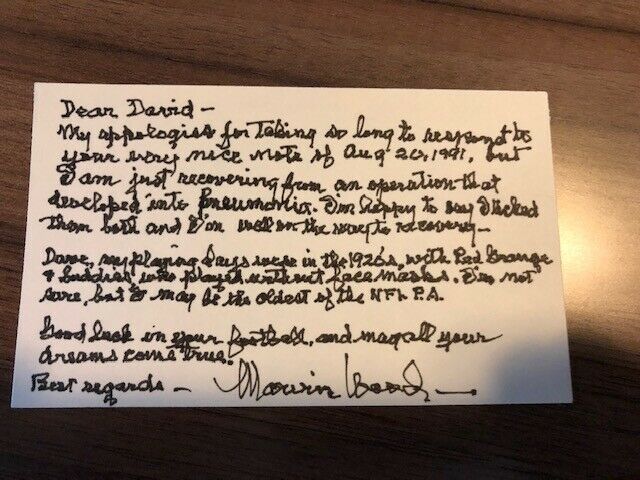 Dear David –
My appologies for taking so long to respond to
your very nice note of Aug 20, 1991, but
I am just recovering from an operation that
developed into Pneumonia. I'm happy to say I licked
them both and I'm well on the way to recovery –
Dave, my playing days were in the 1920's, with Red Grange
& buddies who played without face masks. I'm not
sure, but I may be the oldest of the NFL P.A.
Good luck in your football, and may all your
dreams come true.
Best regards – Marvin Wood